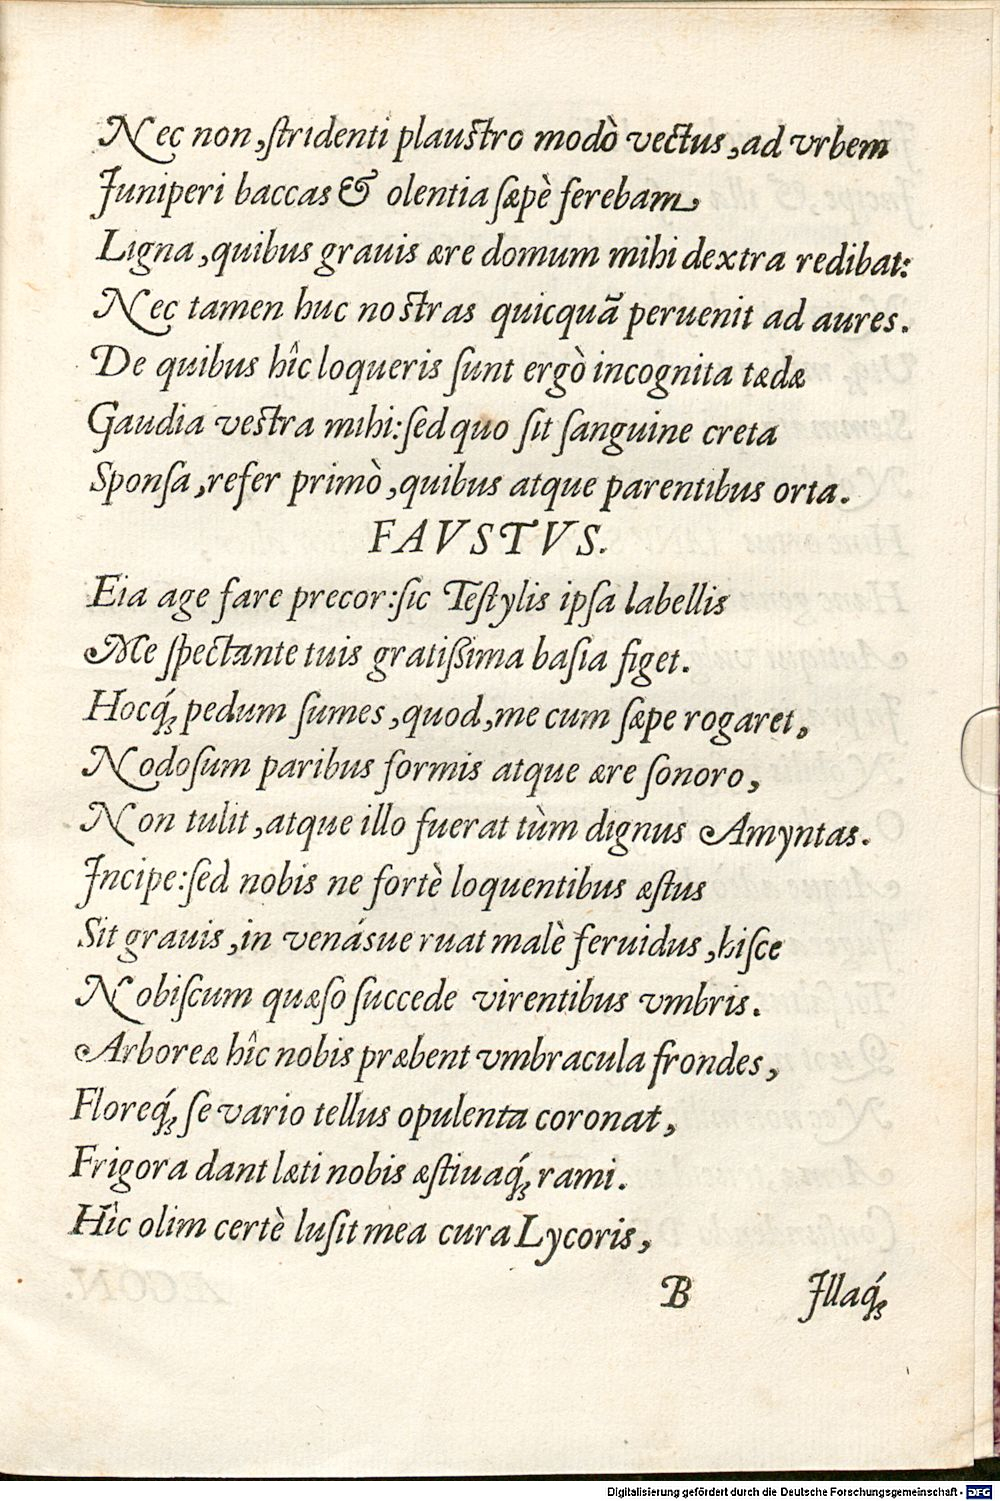 Nec non, ſtridenti plauſtro modò vectus, ad vrbem
Juniperi baccas & olentia ſæpè ferebam
Ligna, quibus grauis ære domum mihi dextra redibat:
Nec tamen huc noſtras quicquã peruenit ad aures.
De quibus hîc loqueris ſunt ergò incognita tædæ
Gaudia veſtra mihi: ſed quo ſit ſanguine creta
Sponſa, refer primò, quibus atque parentibus orta.
FAVSTVS.
Eia age fare precor: ſic Teſtylis ipſa labellis
Me ſpectante tuis gratiſsima baſia figet.
Hocq́ꝫ pedum ſumes, quod, me cum ſæpe rogaret,
Nodoſum paribus formis atque ære ſonoro,
Non tulit, atque illo fuerat tùm dignus Amyntas.
Incipe: ſed nobis ne fortè loquentibus æſtus
Sit grauis, in venásue ruat malè feruidus, hiſce
Nobiſcum quæſo ſuccede virentibus vmbris.
Arboreæ hîc nobis præbent vmbracula frondes,
Floreq́ꝫ ſe vario tellus opulenta coronat,
Frigora dant læti nobis æſtiuaq́ꝫ rami.
Hîc olim certè luſit mea cura Lycoris,
B Illaq́ꝫ
Digitalisierung gefördert durch die Deutsche Forschungsgemeinschaft - DFG